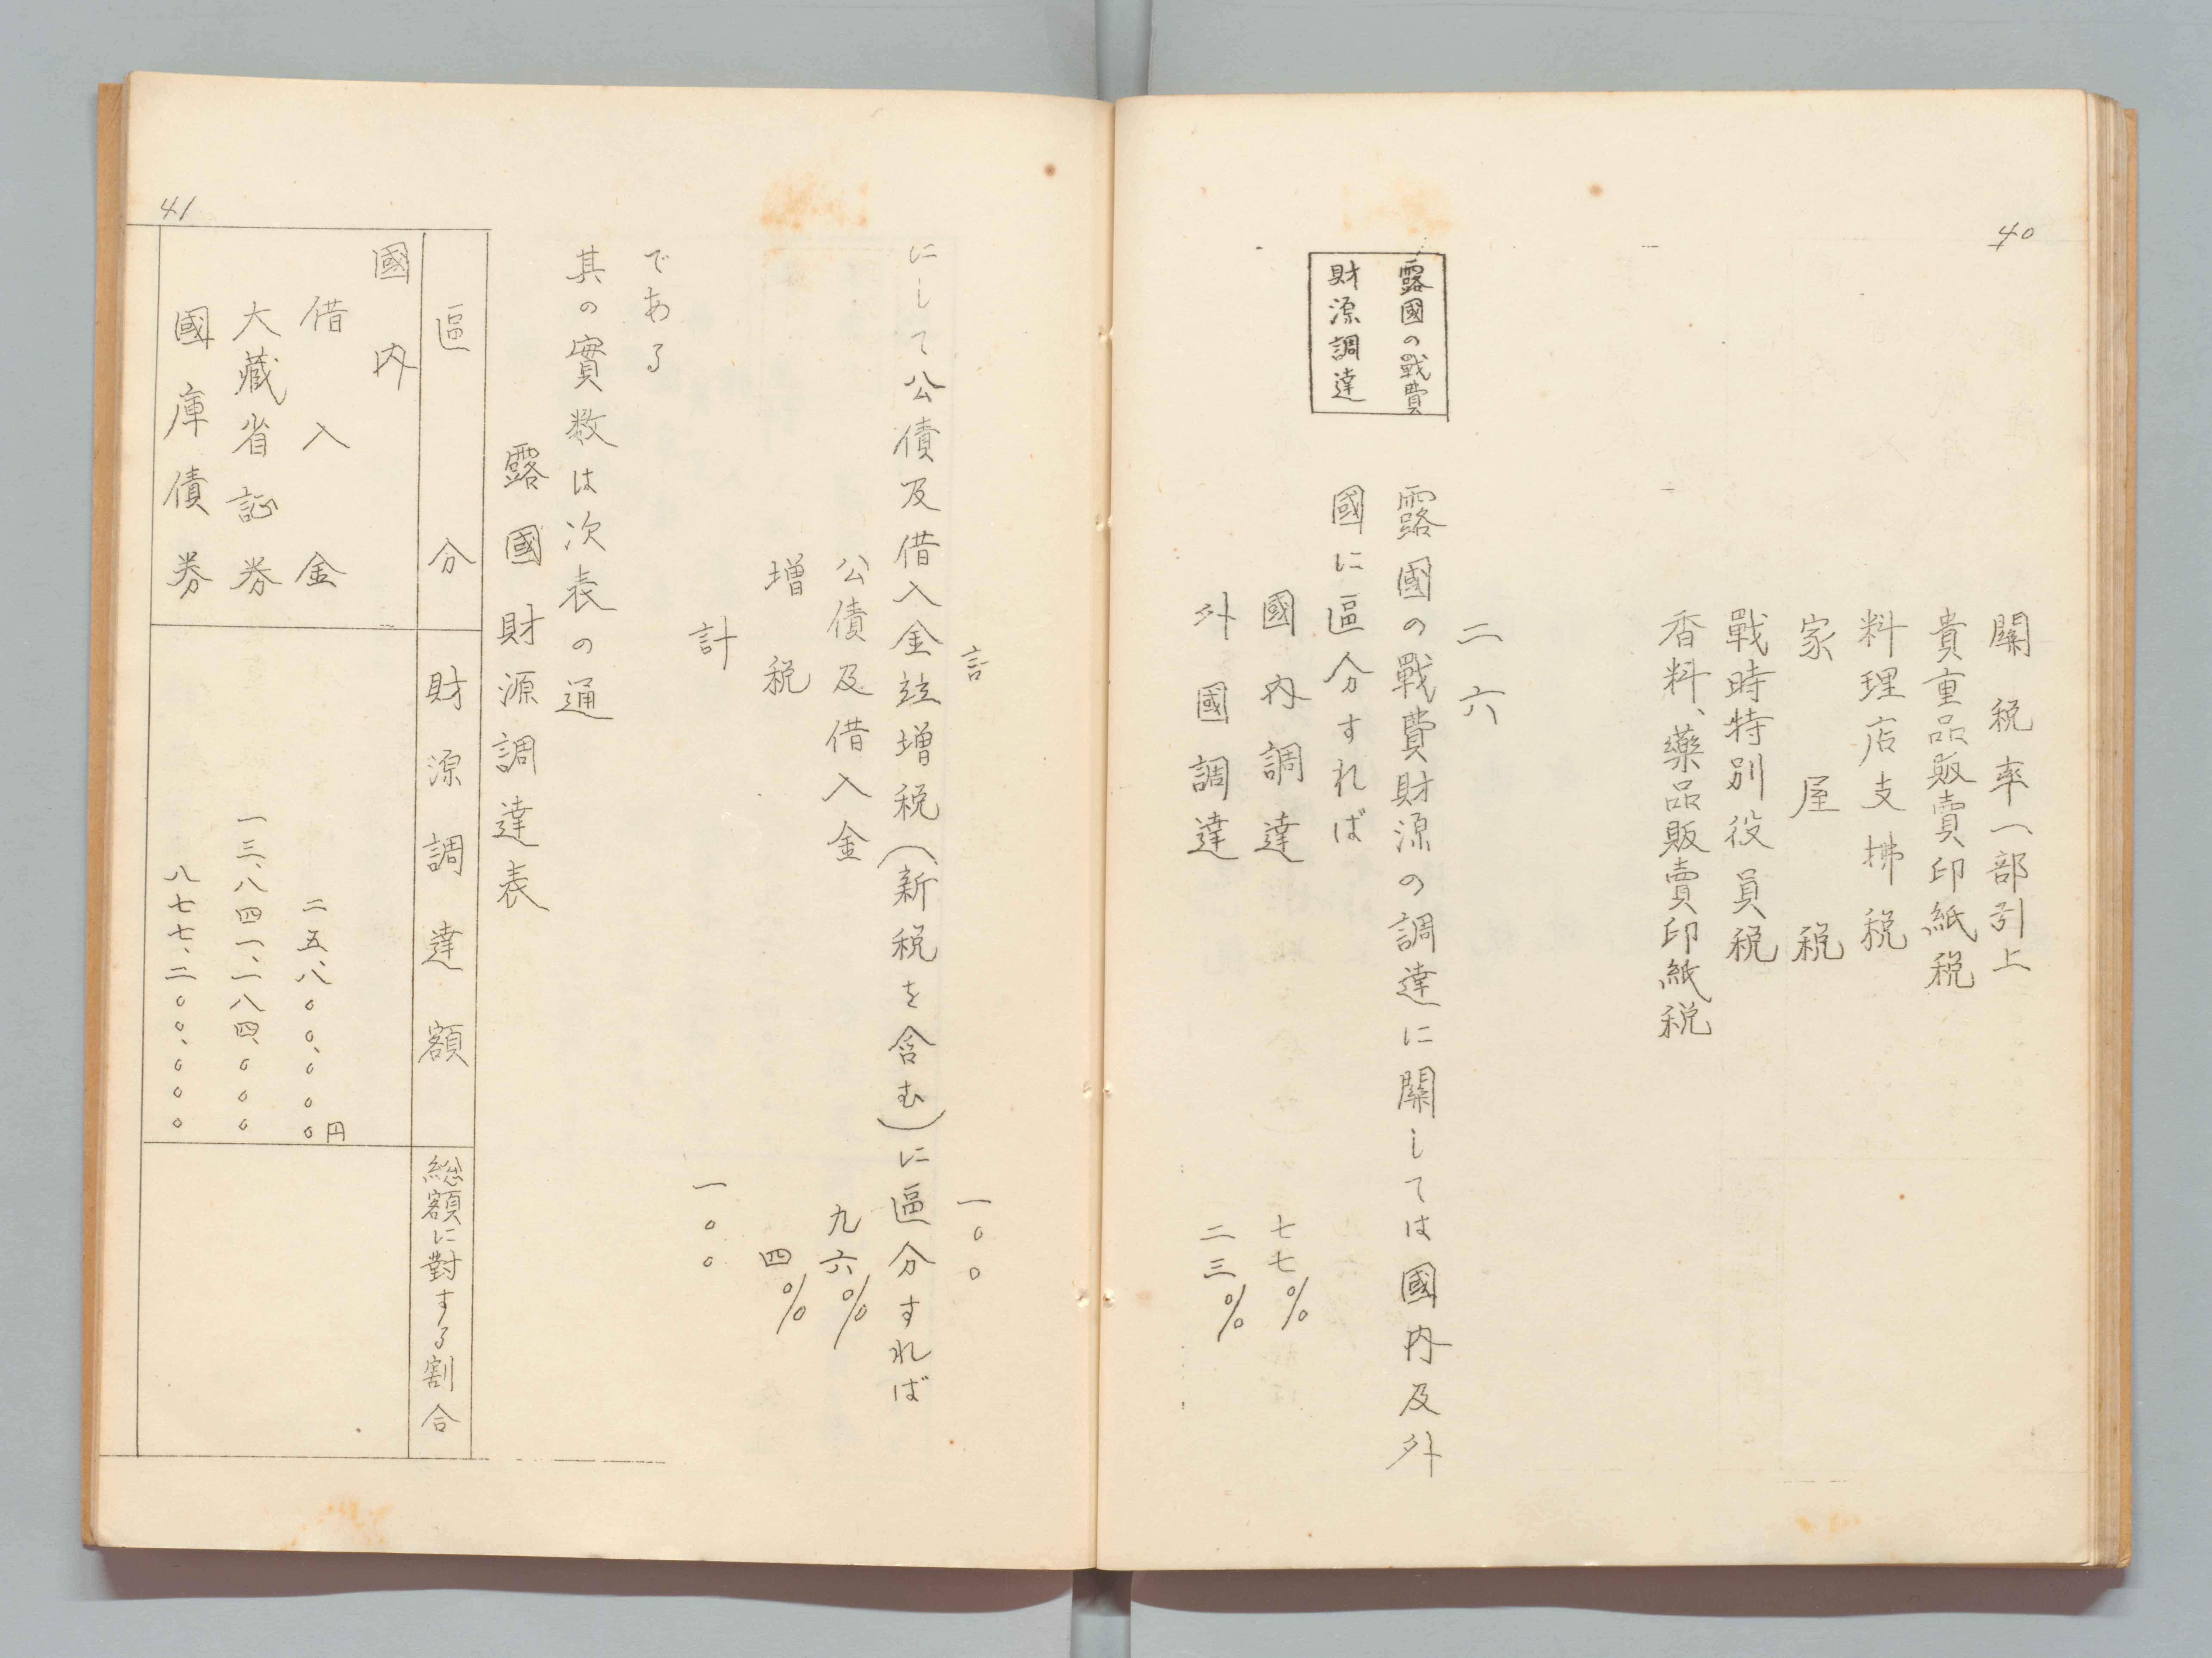 40
關税率一部引上
貴重品販賣印紙税
料理店支拂税
家屋税
戰時特別役員税
香料、藥品販賣印紙税
二六
露國の戰費
財源調達
露國の戰費財源の調達に關しては國内及外
國に區分すれば
國内調達 七七%
外國調達 二三%
計 一〇〇
にして公債及借入金竝増税(新税を含む)に區分すれば
公債及借入金 九六%
増税 四%
計 一〇〇
である
其の實数は次表の通
露國財源調達表
區分 財源調達額 総額に對する割合
國内
借入金 二五、八〇〇、〇〇〇円
大藏省証券 一三、八四一、一八四、〇〇〇
國庫債券 八七七、二〇〇、〇〇〇
41